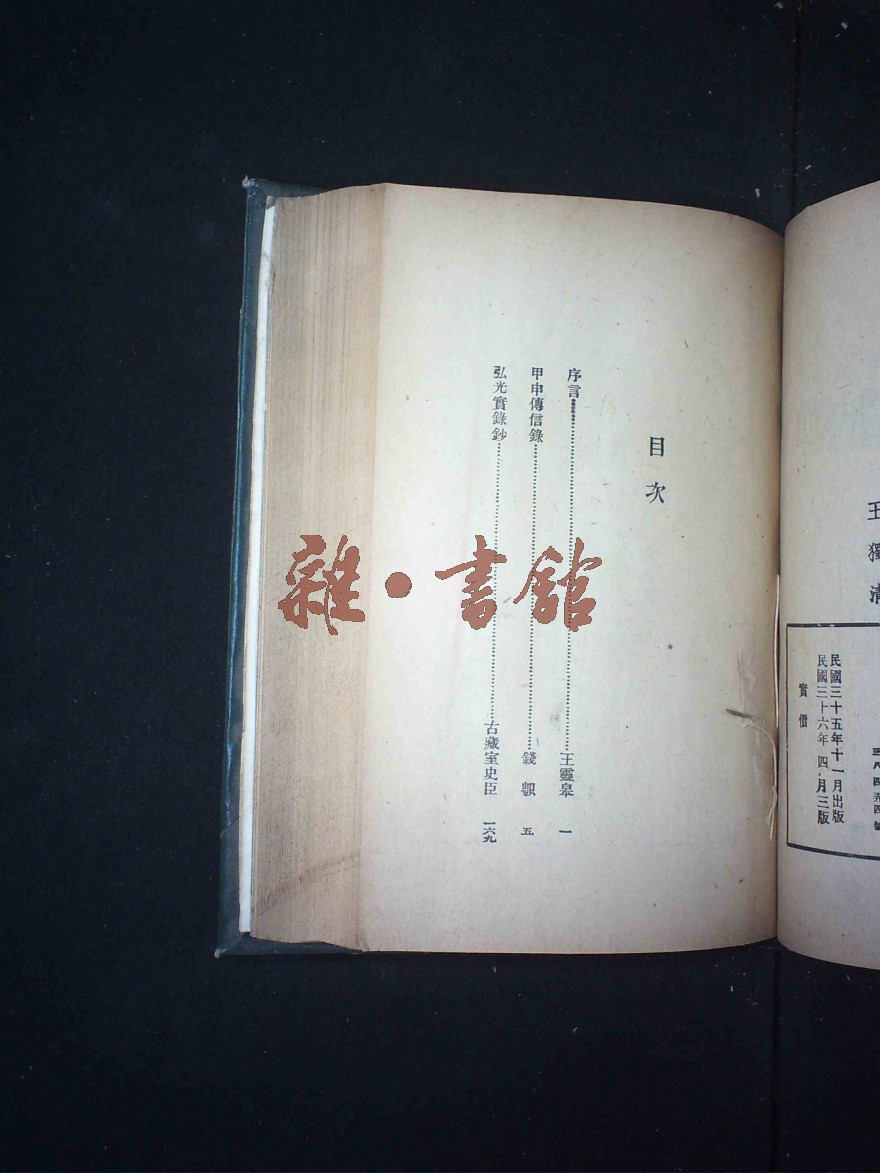 王獨清
民國三十五年十一月出版
民國三十六年四月三版
實價
目次
序言 王靈皋 一
甲申傳信錄 錢𫖮 五
弘光實錄鈔 古藏室史臣 一六九
雜·書館